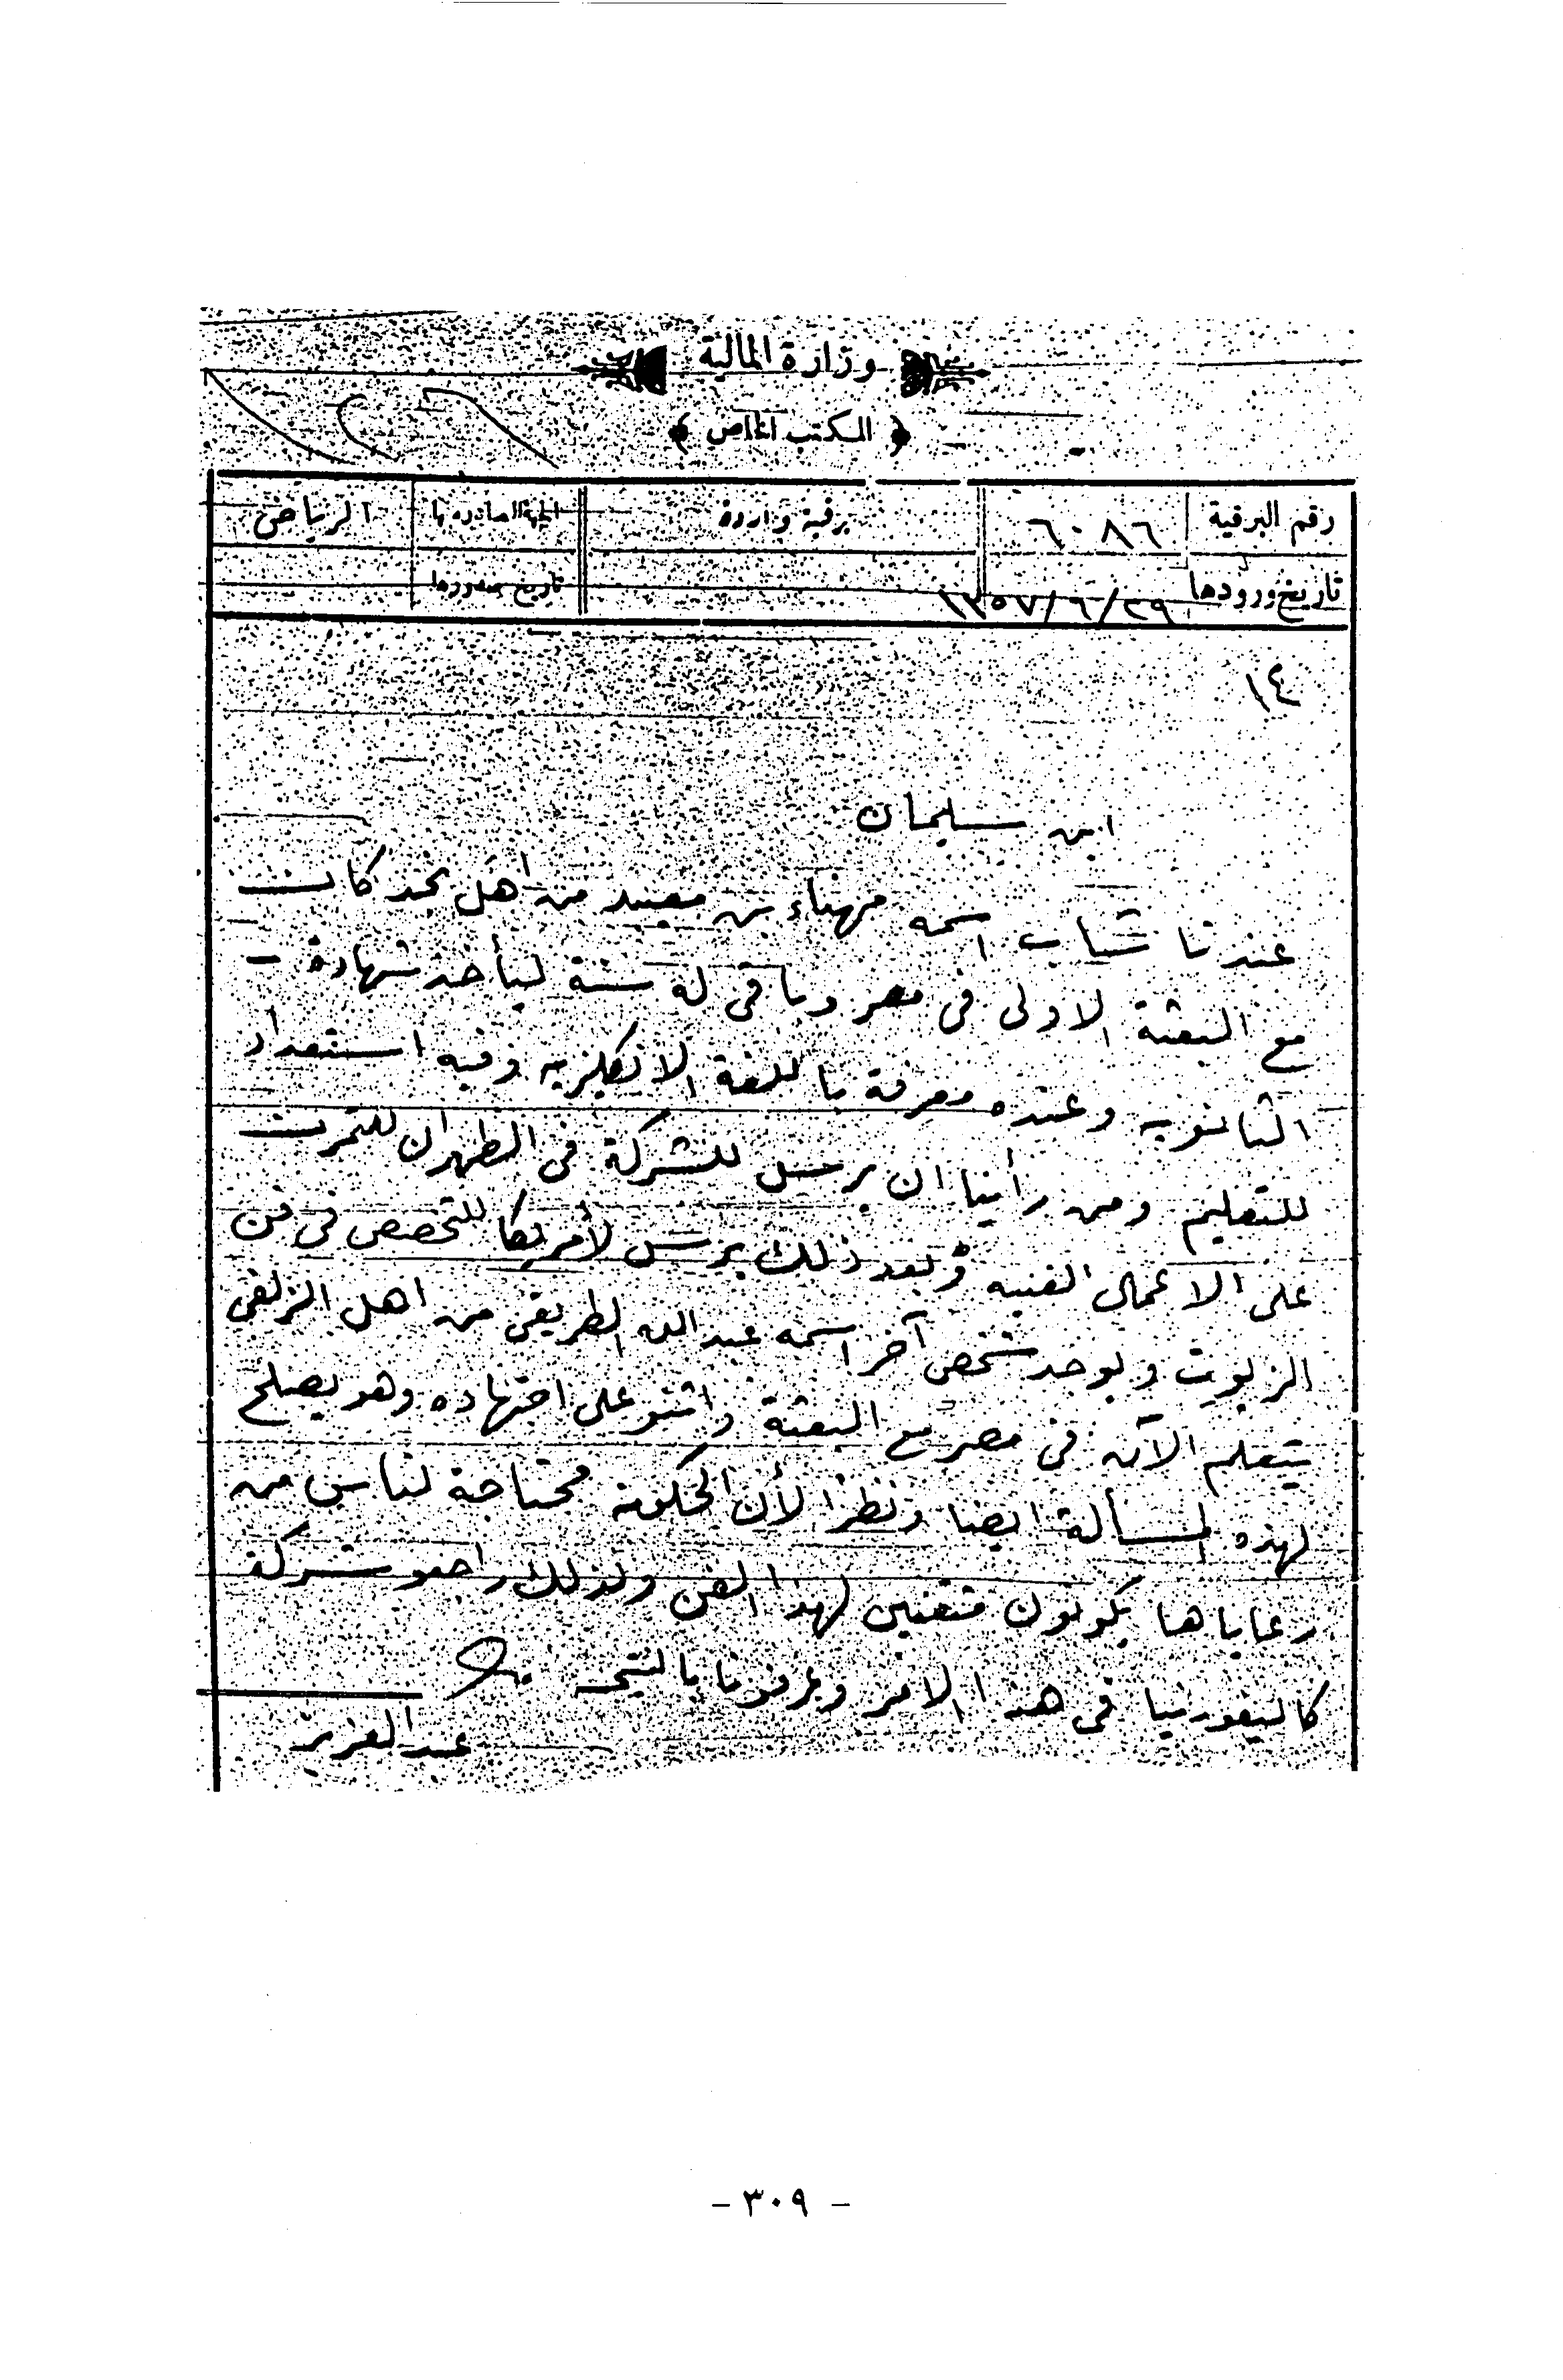 وزارة المالية
المكتب الخاص
رقم البرقية ٦٠٨٦ برقية واردة الجهة الصادرة بها الرياض
تاريخ ورودها ٢٩/٦/١٣٥٧ تاريخ صدورها
١٤
ابن سليمان
عندنا شاب اسمه مهناء بن معيبد من اهل نجد كانت
مع البعثة الاولى في مصر وباقي له سنة ليأخذ شهادة -
الثانويه وعنده معرفة باللغة الانكليزيه وفيه استعداد
للتعليم ومن رأينا ان يرسل للشركة في الظهران للتمرت
على الاعمال الفنيه وبعد ذلك يرسل لأمريكا للتخصص في فن
الزيوت ويوجد شخص آخر اسمه عبدالله الطريقي من اهل الزلفي
يتعلم الآن في مصر مع البعثة واثنو على اجتهاده وهو يصلح
لهذه المسألة ايضا ونظرا لأن الحكومة محتاجة لناس من
رعاياها يكونون متقنين لهذا الفن ولذلك راجعو شركة
كاليفورنيا في هذا الامر وعرفونا بالنتيجه
عبدالعزيز
- ٣٠٩ -